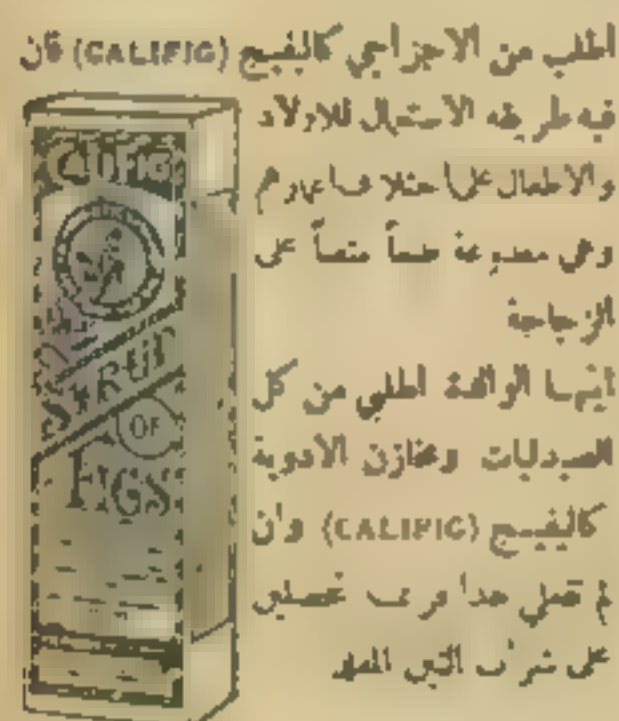 اطلب من الاجزاجي كاليفيج (CALIFIG) فان
فيه طريقه الاستعمال للاولاد
والاطفال على اختلاف اعمارهم
وهي مطبوعة طبعاً متقناً على
الزجاجة
ايتها الوالدة اطلبي من كل
الصيدليات ومخازن الادوية
كاليفيج (CALIFIG) وان
لم تفعلي هذا فربما تحصلين
على شراب التين المقلد
CALIFIG
SYRUP
OF
FIGS